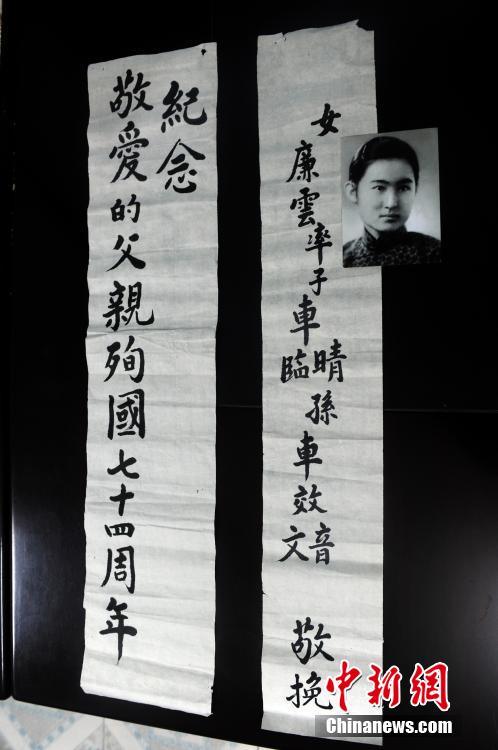 紀念
敬愛的父親殉國七十四周年
女廉雲率子車晴臨孫車效音文 敬挽
中新網
Chinanews.com